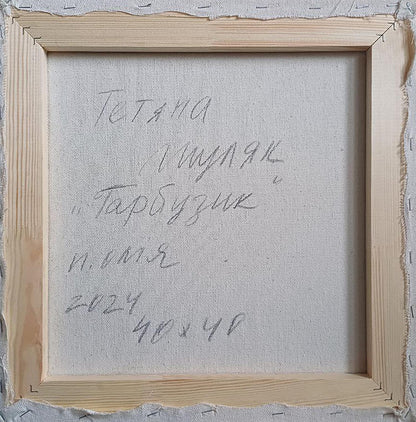 Тетяна
Шуляк
„Гарбузик"
п. олія
2024
40х40